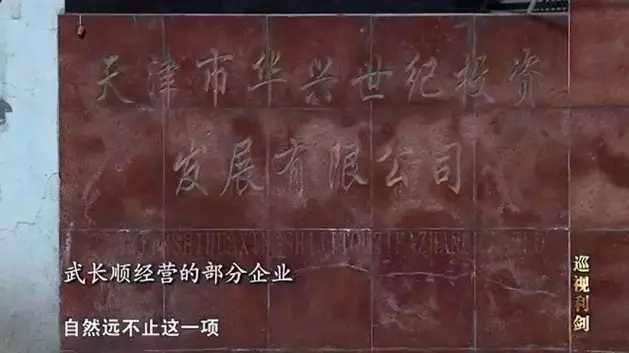 天津市华兴世纪投资
发展有限公司
武长顺经营的部分企业
自然远不止这一项
巡视利剑